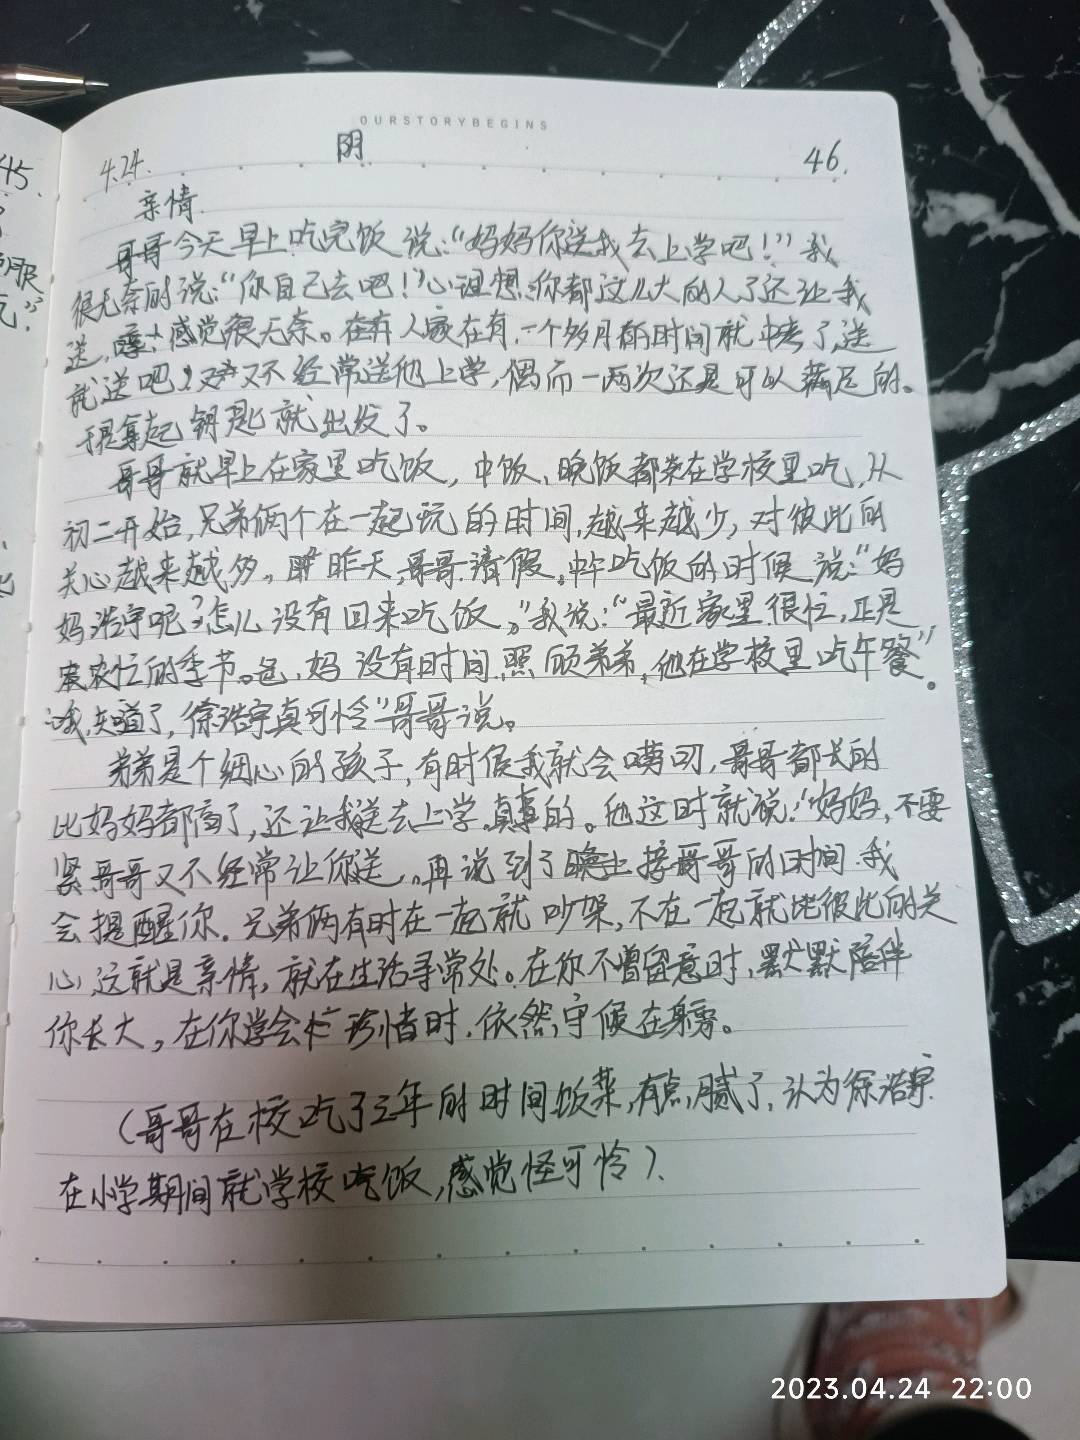 OURSTORYBEGINS
45.
4.24. 阴 46.
亲情.
哥哥今天早上吃完饭说:“妈妈你送我去上学吧!”我
很无奈的说:“你自己去吧!”心里想:你都这儿大的人了还让我
送, 感觉很无奈。在有人家在有.一个多月有的时间就中考了,送
就送吧!又不经常送他上学,偶而一两次还是可以满足的。
于是拿起钥匙就出发了。
哥哥就早上在家里吃饭,中饭、晚饭都在学校里吃,从
初二开始,兄弟俩个在一起玩的时间,越来越少,对彼此的
关心越来越多。昨天,哥哥请假。中午吃饭的时候说:“妈
妈浩宇呢?怎么没有回来吃饭。”我说:“最近家里很忙,正是
农忙的季节。爸.妈没有时间照顾弟弟,他在学校里吃午餐”。
“哦,知道了,徐浩宇真可怜”哥哥说。
弟弟是个细心的孩子,有时候我就会唠叨,哥哥都长的
比妈妈都高了,还让我送去上学。真是的。他这时就说:“妈妈,不要
紧哥哥又不经常让你送,。再说到了晚上接哥哥的时间.我
会提醒你.兄弟俩有时在一起就吵架,不在一起就比彼此的关
心,这就是亲情,就在生活寻常处。在你不曾留意时,默默陪伴
你长大,在你学会忙珍惜时.依然,守候在身旁。
(哥哥在校吃了三年的时间饭菜,有点腻了,认为徐浩宇.
在小学期间就学校吃饭,感觉怪可怜).
2023.04.24 22:00